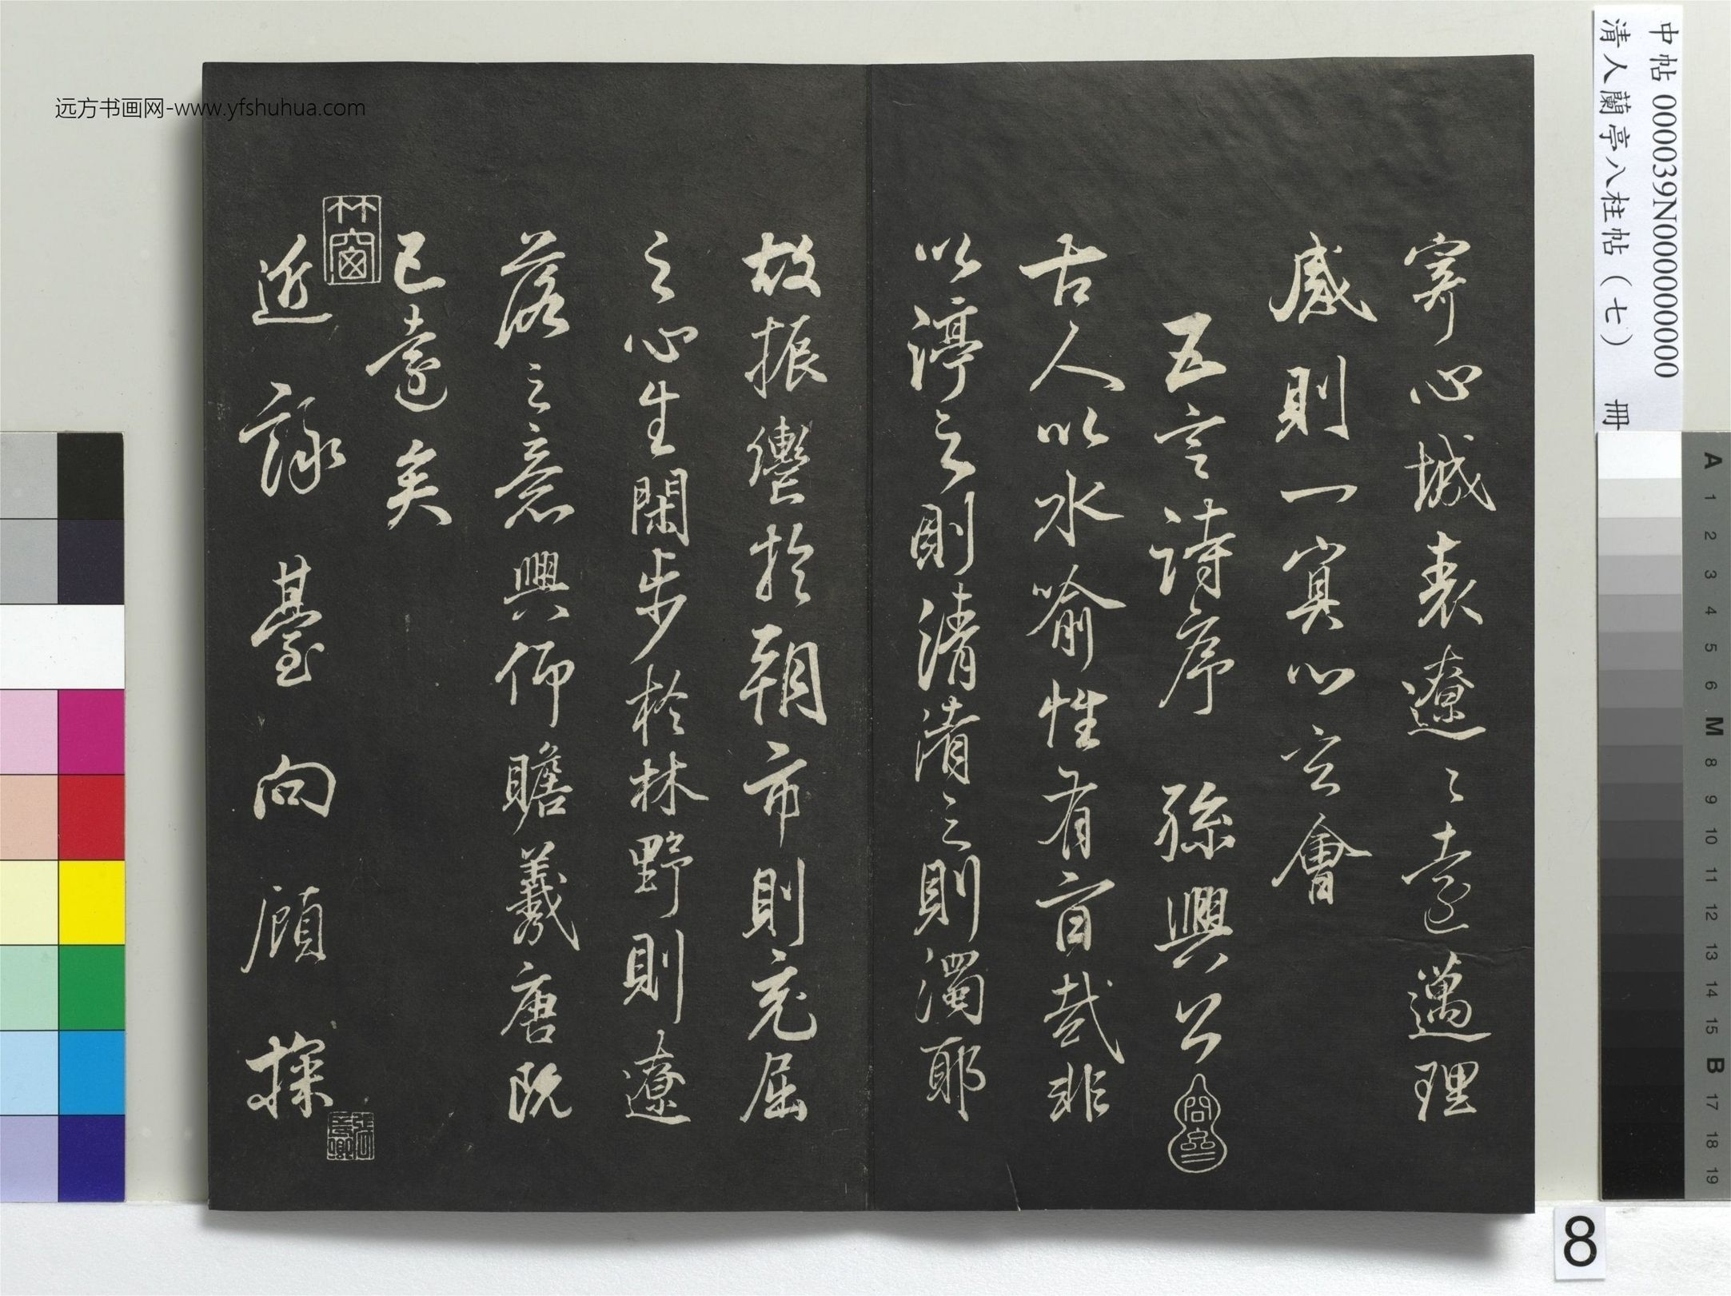 中帖 000039N000000000
清人蘭亭八柱帖(七) 冊
寄心域表遼〻遠邁理
感則一冥心玄會
五言詩序 孫興公
古人以水喻性有旨哉非
以渟之則清淆之則濁耶
故振轡於朝市則充屈
之心生閑步於林野則遼
落之意興仰瞻羲唐既
已遠矣
竹窗
近詠臺向顧探
远方书画网-www.yfshuhua.com
A
1
2
3
4
5
6
M
8
9
10
11
12
13
14
15
B
17
18
19
8